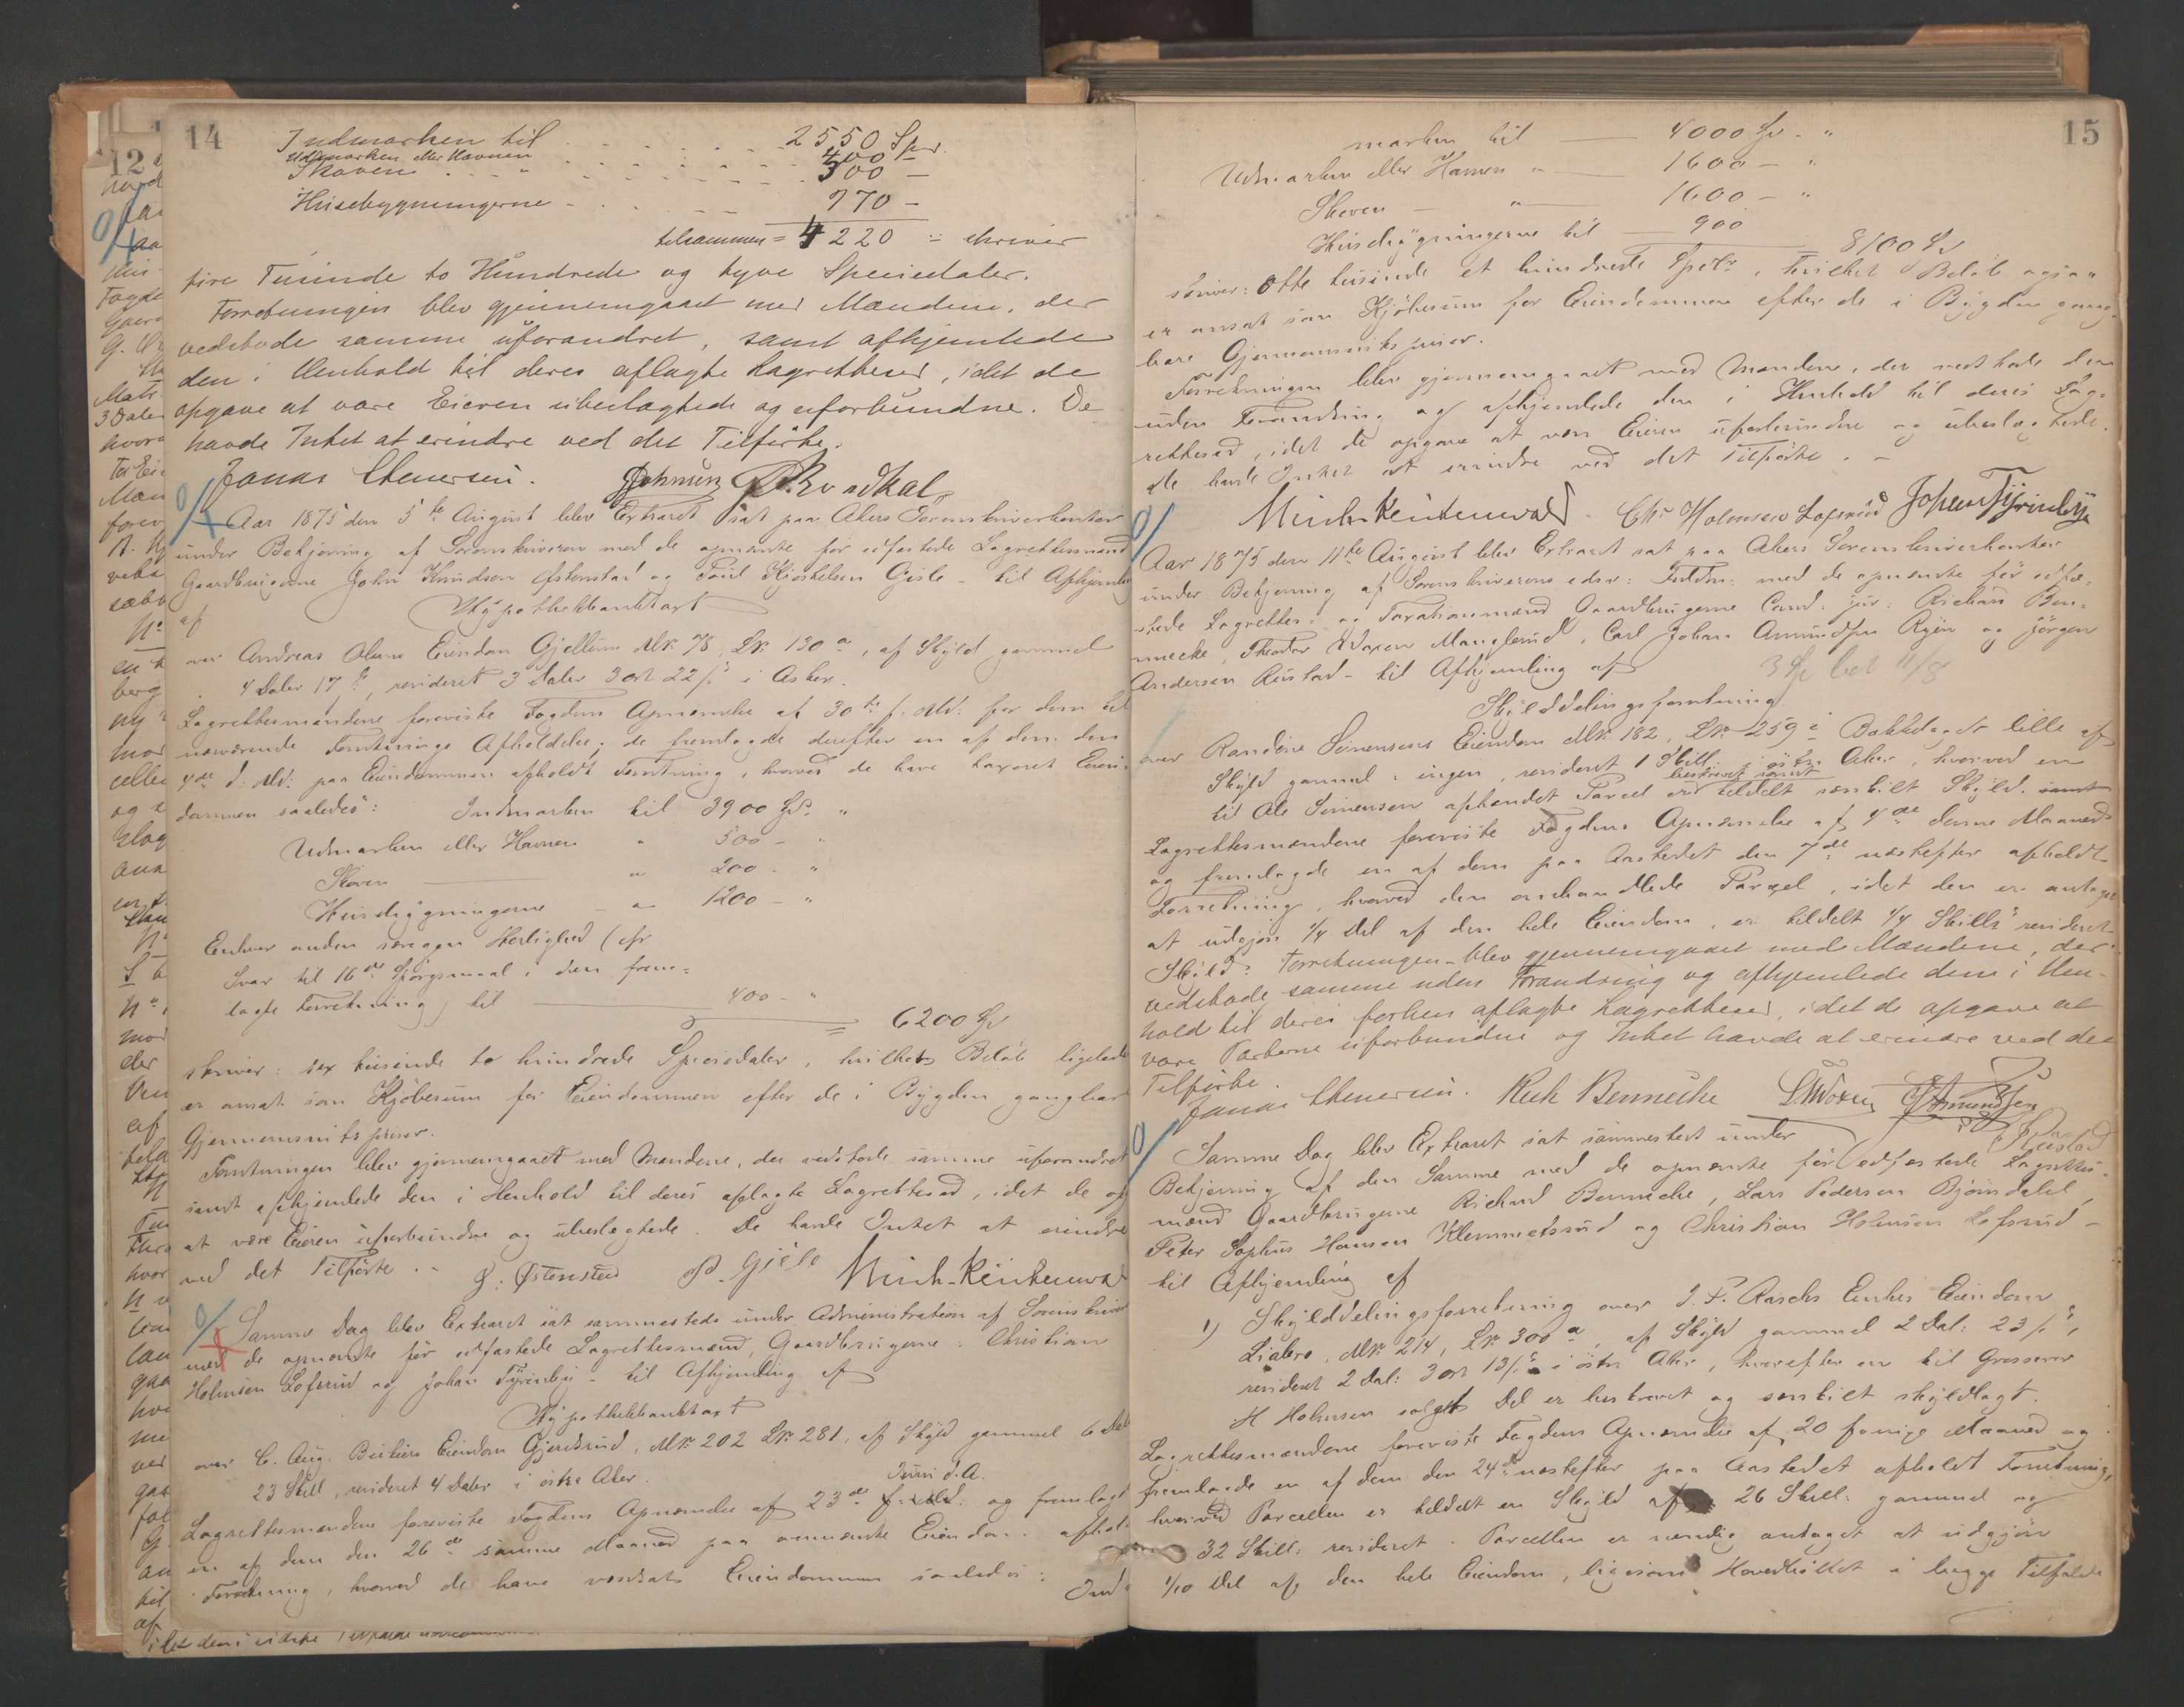 14
Indmarken til . . . . . 2550 Spr.
Udmarken eller Havnen . . . . 400 -
Skoven . . . . . 500 -
Husebygningerne - . . . . 770 -
tilsammen = 4220 :- skriver
fire Tusinde to Hundrede og tyve Speciedaler.
Forretningen blev gjennemgaaet med Mændene, der
vedstode samme uforandret, samt afhjemlede
den i Henhold til deres aflagte Lagrettesed, idet de
opgave at være Eieren ubeslægtede og uforbundne. De
havde Intet at erindre ved det Tilførte.
Jonas
Aar 1875 den 5te August blev Extraret sat paa Akers Sorenskriverkontor
under Betjening af Sorenskriveren med de opnævnte før edfæstede Lagrettesmænd
Gaardbrugerne John Knudsen Østenstad og Poul Kjøstelsen Gisle - til Afhjemling
af Hypothekbanktaxt
over Andreas Olsens Eiendom Gjellum Mk. 78, Lk. 130 a, af Skyld gammel
4 Daler 17 ß, revideret 3 Daler 3 ort 22 ß i Asker.
Lagrettesmændene foreviste Fogdens Opnævnelse af 30te f. Md. for dem til
nærværende Forretnings Afholdelse; de fremlagde derefter en af dem den
4de d. Md. paa Eiendommen afholdt Forretning, hvorved de have taxeret Eien-
dommen saaledes: Indmarken til 3900 Sp. "
Udmarken eller Havnen " 500 - "
Skoven " 200 - "
Husebygningerne " 1200 - "
Enhver anden særegen Herlighed (cfr
Svar til 16de Spørgsmaal i den frem=
lagte Forretning) til 400 - "
= 6200 Sp
skriver: sex tusinde to hundrede Speciedaler, hvilket Beløb ligeledes
er ansat som Kjøbesum for Eiendommen efter de i Bygden gangbar
Gjennemsnitspriser.
Forretningen blev gjennemgaaet med Mændene, der vedstode samme uforandret
samt afhjemlede den i Henhold til deres aflagte Lagrettesed, idet de op
at være Eieren uforbundne og ubeslægtede. De havde Intet at erindre
ved det Tilførte. - J. Østenstad P. Gisle Münch-Reichenwald
Samme Dag blev Extraret sat sammesteds under Administration af Sorenskriver
med de opnævnte før edfæstede Lagrettesmænd, Gaardbrugerne: Christian
Holmsen Lofsrud og Johan Tyrinby - til Afhjemling af
Hypothekbanktaxt
over C. Aug. Eiendom Gjersrud, Mk. 202 Lk. 281, af Skyld gammel 6 Dal
23 Skill, revideret 4 Daler i østre Aker.
Juni d.A.
Lagrettesmændene foreviste Fogdens Opnævnelse af 23de f. Md. og fremlagt
en af dem den 26de samme Maaned paa omnævnte Eiendom afhol
Forretning, hvorved de have værdsat Eiendommen saaledes:
Ind
15
marken til 4000 Sp - "
Udmarken eller Havnen " 1600 - "
Skoven " 1600 - "
Husebygningerne til 900
8100 Sp
skriver: Otte tusinde et hundrede Spdlr, hvilket Beløb ogsaa
er ansat som Kjøbesum for Eiendommen efter de i Bygden gang-
bare Gjennemsnitspriser.
Forretningen blev gjennemgaaet med Mændene, der vedstode den
uden Forandring og afhjemlede den i Henhold til deres Lag-
rettesed, idet de opgave at være Eieren uforbundne og ubeslægtede.
De havde Intet at erindre ved det Tilførte. -
Münch-Reichenwald. Chr Holmsen Lofsrud Johan Tyrinby
Aar 1875 den 11te August blev Extraret sat paa Akers Sorenskriverkontor
under Betjening af Sorenskriverens edsv: Fuldm: med de opnævnte før edfæ-
stede Lagrettes- og Taxationsmænd Gaardbrugerne Cand: jur: Richard Ben-
necke, Theodor Woxen Manglerud, Carl Johan Amundsen Ryen og Jørgen
Andersen Rustad - til Afhjemling af 3 Sp bet 11/8
Skylddelingsforretning
over Randine Simensens Eiendom Mk. 182, Lk. 259 c Bakkelaget lille af
Skyld gammel: ingen, revideret 1 Skill: i østre Aker, hvorved en
beskrevet samt
til Ole Simensen afhændet Parcel er tildelt særskilt Skyld. samt
Lagrettesmændene foreviste Fogdens Opnævnelse af 4de denne Maaned
og fremlagde en af dem paa Aastedet den 7de næstefter afholdt
Forretning, hvorved den omhandlede Parcel, idet den er antaget
at udgjøre 1/4 Del af den hele Eiendom, er tildelt 1/4 Skills revideret
Skyld. Forretningen blev gjennemgaaet med Mændene, der
vedstode samme uden Forandring og afhjemlede dem i Hen-
hold til deres forhen aflagte Lagrettesed, idet de opgave at
være Parterne uforbundne og Intet havde at erindre ved det
Tilførte.
Jonas Rich Bennecke Th Woxen CJ Amundsen
J Rustad
Samme Dag blev Extraret sat sammesteds under
Betjening af den Samme med de opnævnte før edfæstede Lagrettes-
mænd Gaardbrugerne Richard Bennecke, Lars Pedersen Bjørndalel,
Peter Sophus Hansen Klemmetsrud og Christian Holmsen Lofsrud -
til Afhjemling af
1) Skylddelingsforretning over J. F. Raschs Enkes Eiendom
Liabro, Mk. 214, Lk. 300 a, af Skyld gammel 2 Dal: 23 ß,
revideret 2 Dal: 3 ort 13 ß i østre Aker, hvorefter en til Grosserer
H Holmsen solgt Del er beskrevet og særskilt skyldlagt.
Lagrettesmændene foreviste Fogdens Opnævnelse af 20 forrige Maaned og
fremlagde en af dem den 24de næstefter paa Aastedet afholdt Forretning,
hvorved Parcellen er tildelt en Skyld af 26 Skill: gammel og
32 Skill: revideret. Parcellen er nemlig antaget at udgjøre
1/10 Del af den hele Eiendom, ligesom Hovedbøllet i begge Tilfælde